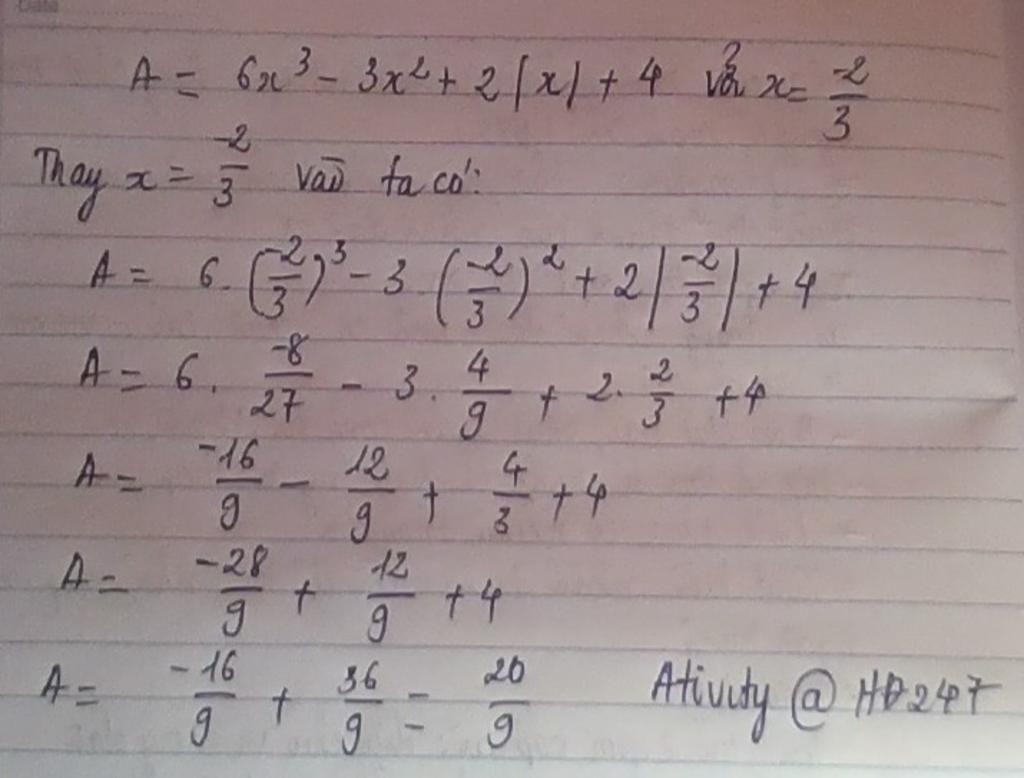 Data
A = 6x³ - 3x² + 2|x| + 4 với x = -2/3
Thay x = -2/3 vào ta có:
A = 6 . (-2/3)³ - 3 (-2/3)² + 2|-2/3| + 4
A = 6 . -8/27 - 3 . 4/9 + 2 . 2/3 + 4
A = -16/9 - 12/9 + 4/3 + 4
A = -28/9 + 12/9 + 4
A = -16/9 + 36/9 = 20/9 Ativity @ HĐ247